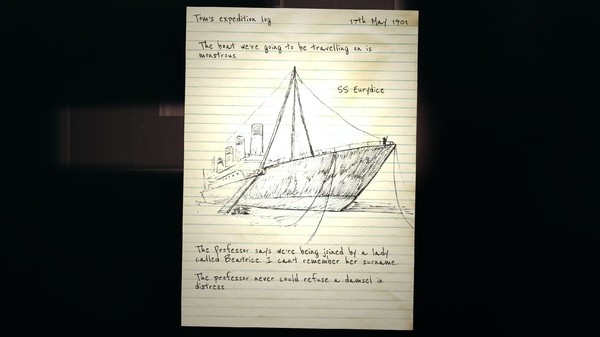 Tom's expedition log
17th May 1902
The boat we're going to be travelling on is
monstrous.
SS Eurydice
The Professor says we're being joined by a lady
called Beatrice. I can't remember her surname.
The professor never could refuse a damsel in
distress.